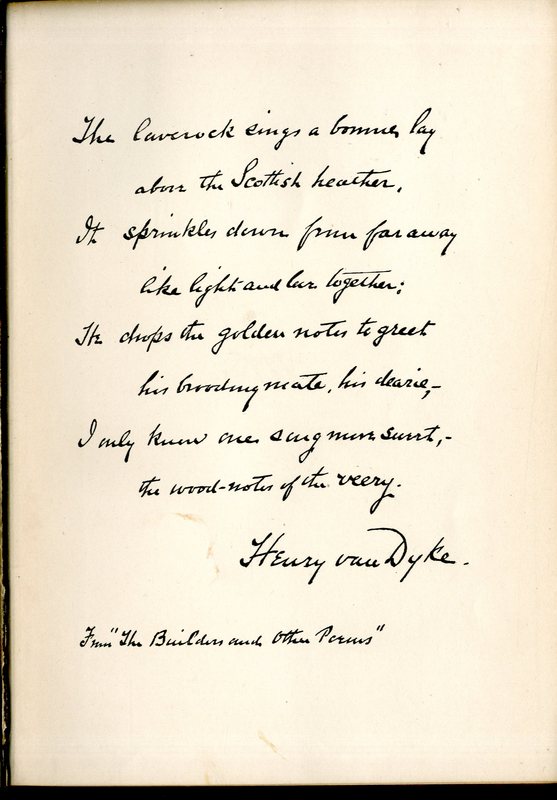 The laverock sings a bonnie lay
above the Scottish heather,
It sprinkles down from far away
like light and love together;
He drops the golden notes to greet
his brooding mate, his dearie,–
I only know one song more sweet,–
the wood-notes of the veery.
Henry van Dyke.
From "The Builders and Other Poems"